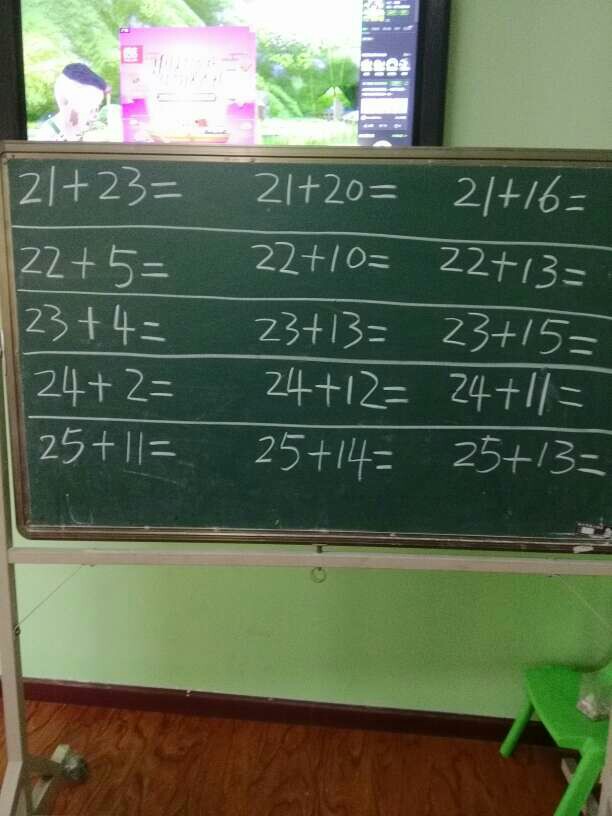 21+23= 21+20= 21+16=
22+5= 22+10= 22+13=
23+4= 23+13= 23+15=
24+2= 24+12= 24+11=
25+11= 25+14= 25+13=